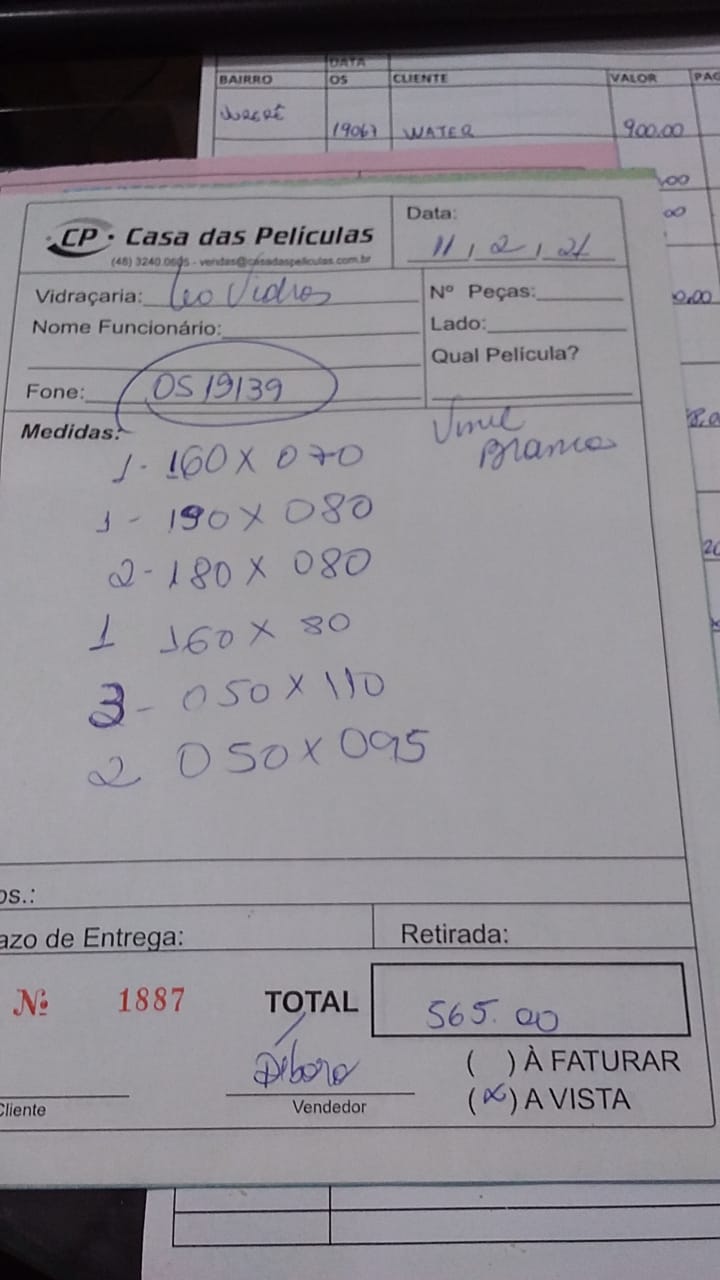 DATA
BAIRRO OS CLIENTE VALOR PAG
19067 WATER 900.00
CP · Casa das Películas
(48) 3240.0605 - vendas@casadaspeliculas.com.br
Data: 11, 2, 21
Vidraçaria: Leo Vidros
Nome Funcionário:
Fone: OS 19139
Nº Peças:
Lado:
Qual Película?
Vinil
Branco
Medidas:
1 - 160 X 070
1 - 190 X 080
2 - 180 X 080
1 160 X 80
3 - 050 X 110
2 050 X 095
os.:
azo de Entrega:
Retirada:
Nº 1887
TOTAL 565.00
Débora
( ) À FATURAR
(x) A VISTA
Cliente
Vendedor